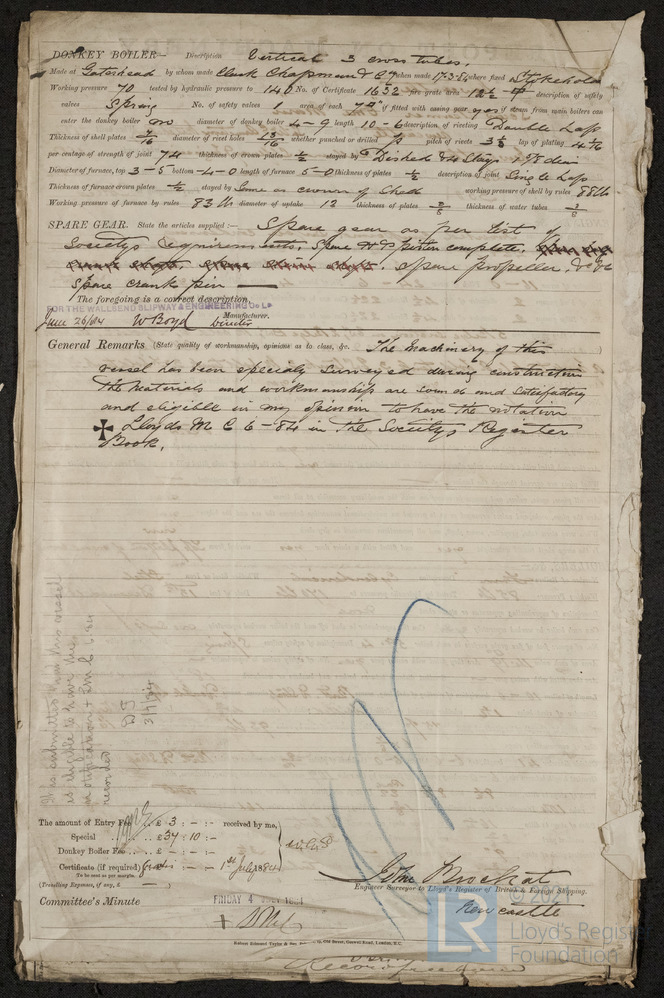 DONKEY BOILER— Description Vertical 3 cross tubes.
Made at Gateshead by whom made Clark Chapman & Co when made 17.3.84 where fixed Stokehold
Working pressure 70 tested by hydraulic pressure to 140 No. of Certificate 1632 fire grate area 12½ description of safety
valves Spring No. of safety valves 1 area of each if fitted with easing gear yes if steam from main boilers can
enter the donkey boiler no diameter of donkey boiler 4-9 length 10-6 description of riveting Double Lap
Thickness of shell plates 7/16 diameter of rivet holes 13/16 whether punched or drilled p pitch of rivets lap of plating
per-centage of strength of joint 74 thickness of crown plates ½ stayed by Dished & 4 Stays 1⅞ diam
Diameter of furnace, top 3-5 bottom 4-0 length of furnace 5-0 thickness of plates ½ description of joint Single Lap
Thickness of furnace crown plates ½ stayed by Same as crown of Shell working pressure of shell by rules 88 lb
Working pressure of furnace by rules 83 lb diameter of uptake 12 thickness of plates 3/8 thickness of water tubes 3/8
SPARE GEAR. State the articles supplied:— Spare gear as per list of
Societys Requirements. Spare piston complete.
Spare propeller,
Spare crank pin —
The foregoing is a correct description,
FOR THE WALLSEND SLIPWAY & ENGINEERING Co Ld
June 26/84 W Boyd Director Manufacturer.
General Remarks (State quality of workmanship, opinions as to class, &c. The Machinery of this
vessel has been specialy surveyed during construction
the materials and workmanship are sound and satisfactory
and eligible in my opinion to have the notation
✠ Lloyds M C 6-84 in the Societys Register
Book.
It is submitted that this vessel
is eligible to have the
notification + LMC 6.84
recorded
The amount of Entry Fee .. £ 3 : - : - received by me,
Special .. £ 34 : 10 : -
Donkey Boiler Fee .. £ - : - : -
Certificate (if required) Gratis : - 1st July 1884
To be sent as per margin.
(Travelling Expenses, if any, £ — )
Engineer Surveyor to Lloyd's Register of British & Foreign Shipping.
Newcastle
Committee's Minute
FRIDAY 4 JULY 1884
LR
© 2021
Lloyd's Register
Foundation